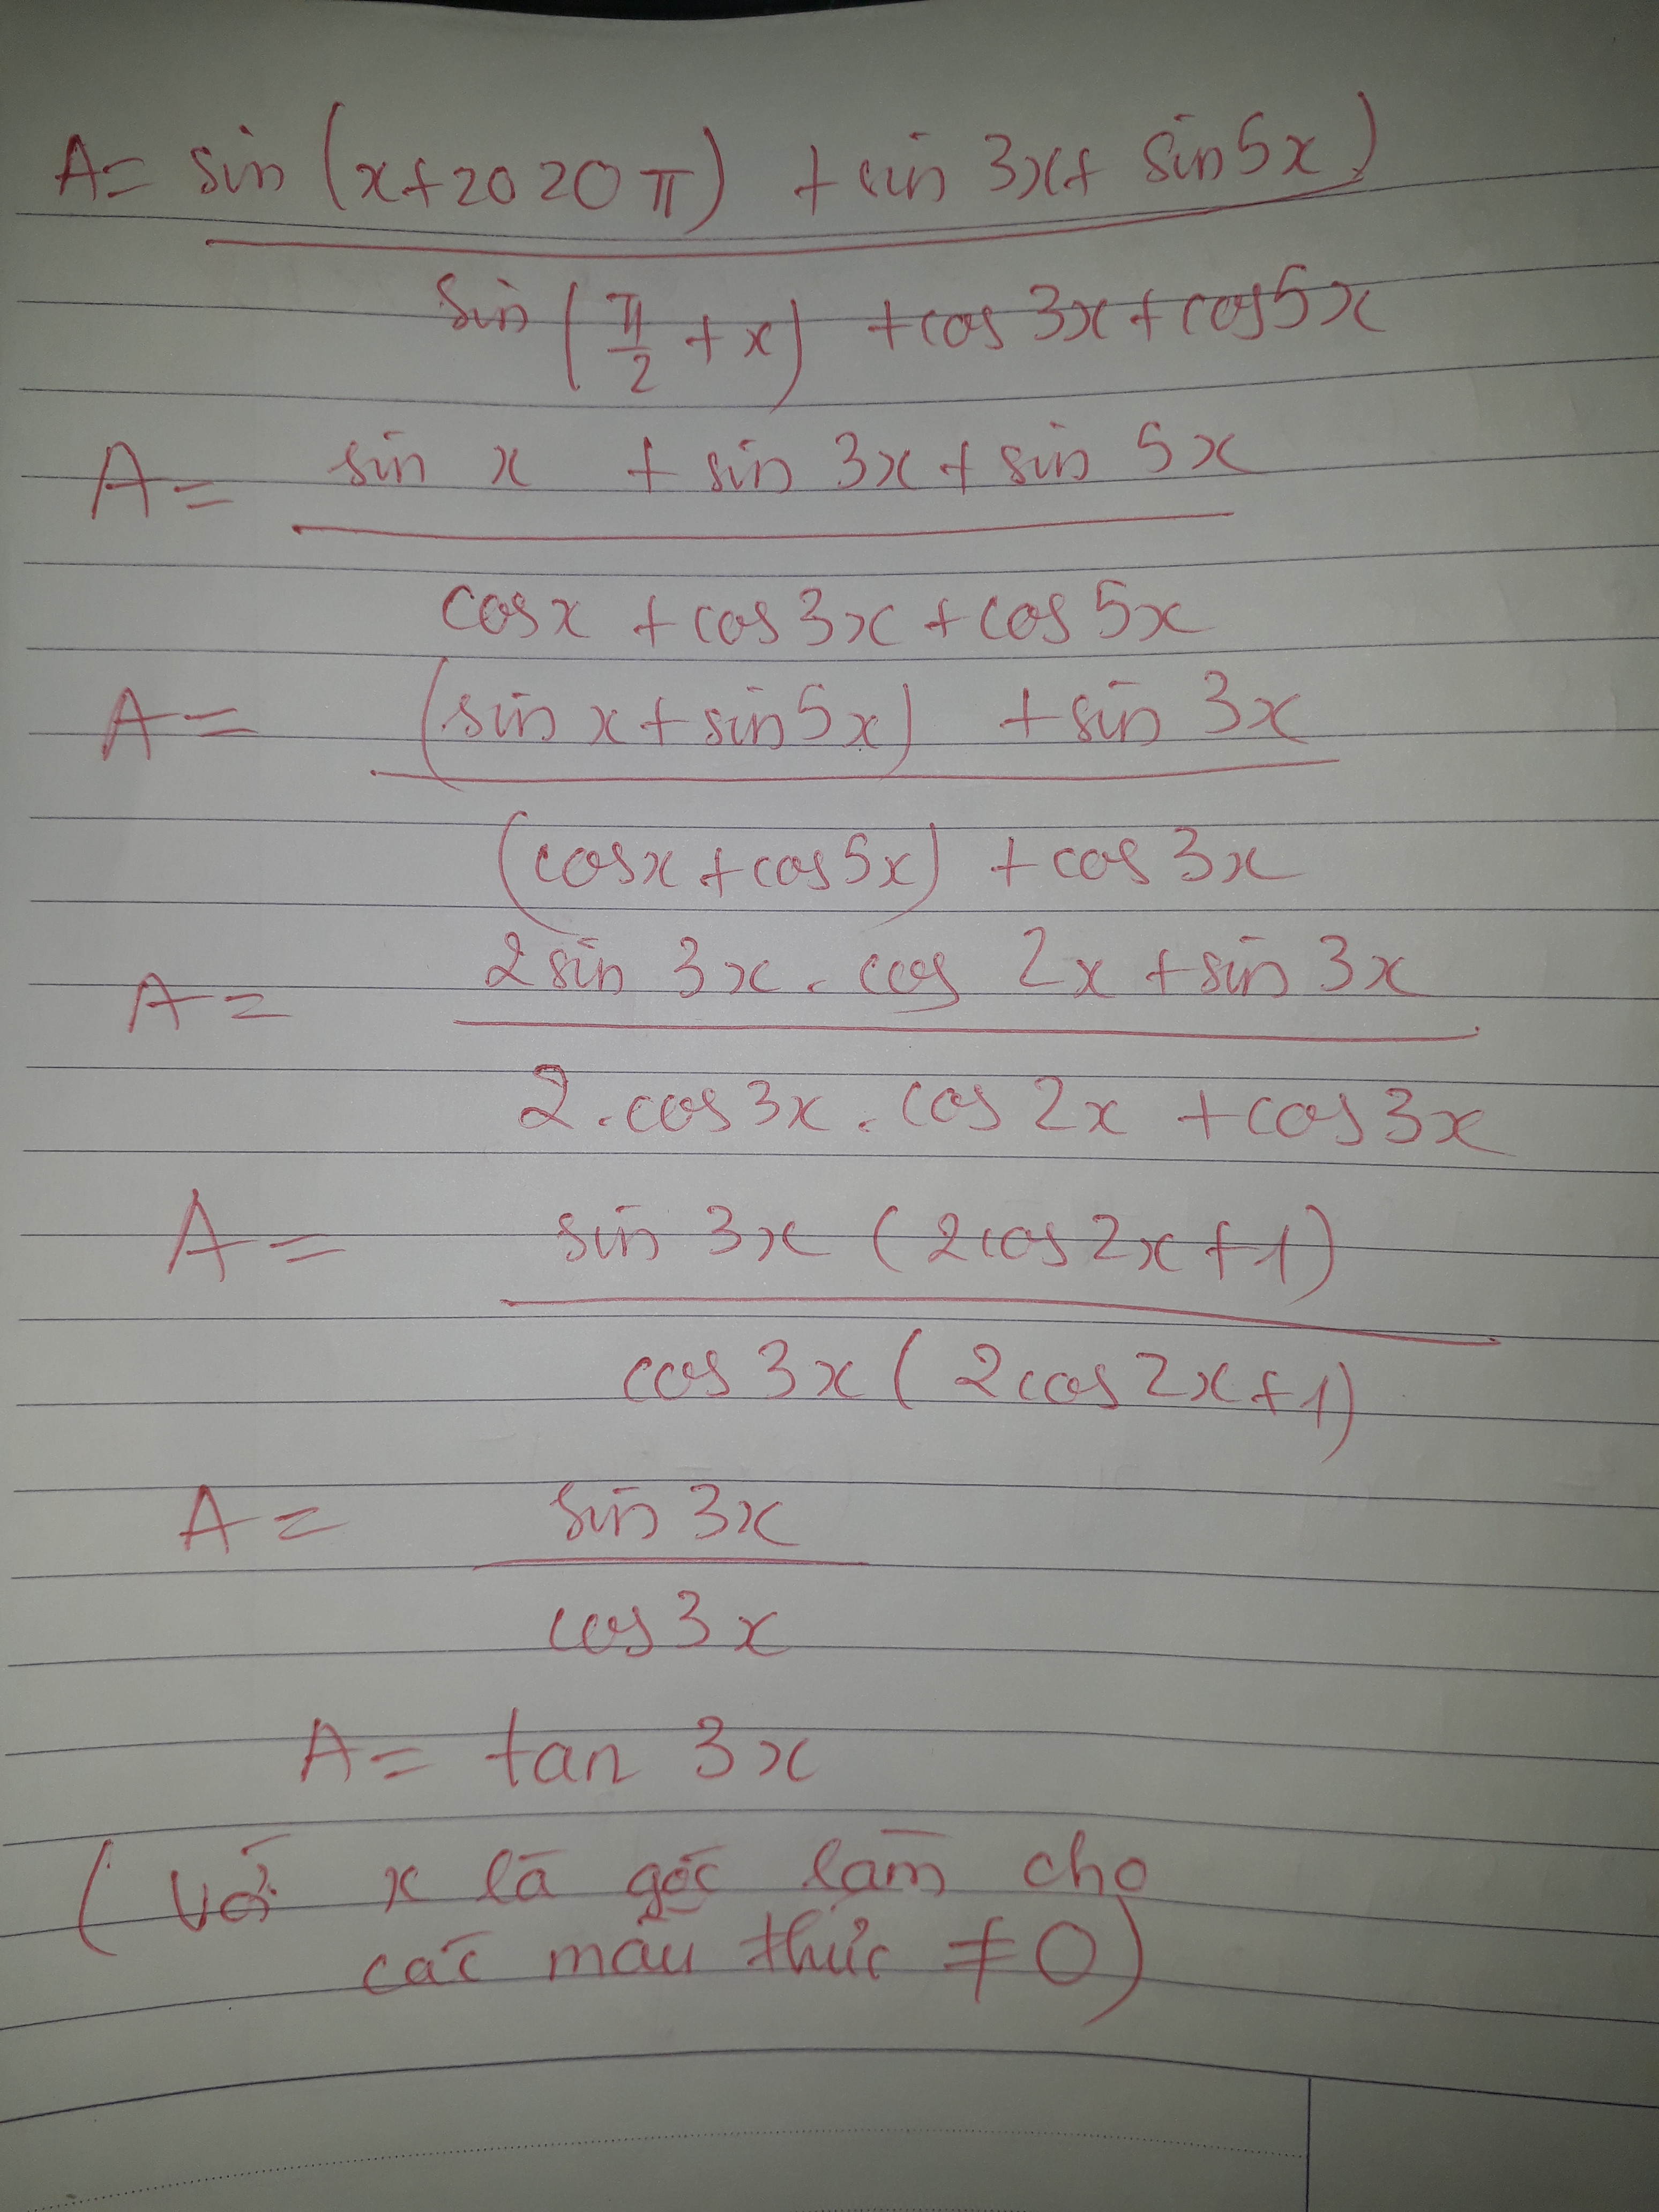 A = sin (x+2020π) + sin 3x + sin 5x)
sin (π/2 + x) + cos 3x + cos 5x
A = sin x + sin 3x + sin 5x
cos x + cos 3x + cos 5x
A = (sin x + sin 5x) + sin 3x
(cos x + cos 5x) + cos 3x
A = 2 sin 3x . cos 2x + sin 3x
2 . cos 3x . cos 2x + cos 3x
A = sin 3x (2 cos 2x + 1)
cos 3x (2 cos 2x + 1)
A = sin 3x
cos 3x
A = tan 3x
(với x là góc làm cho
các mẫu thức ≠ 0)